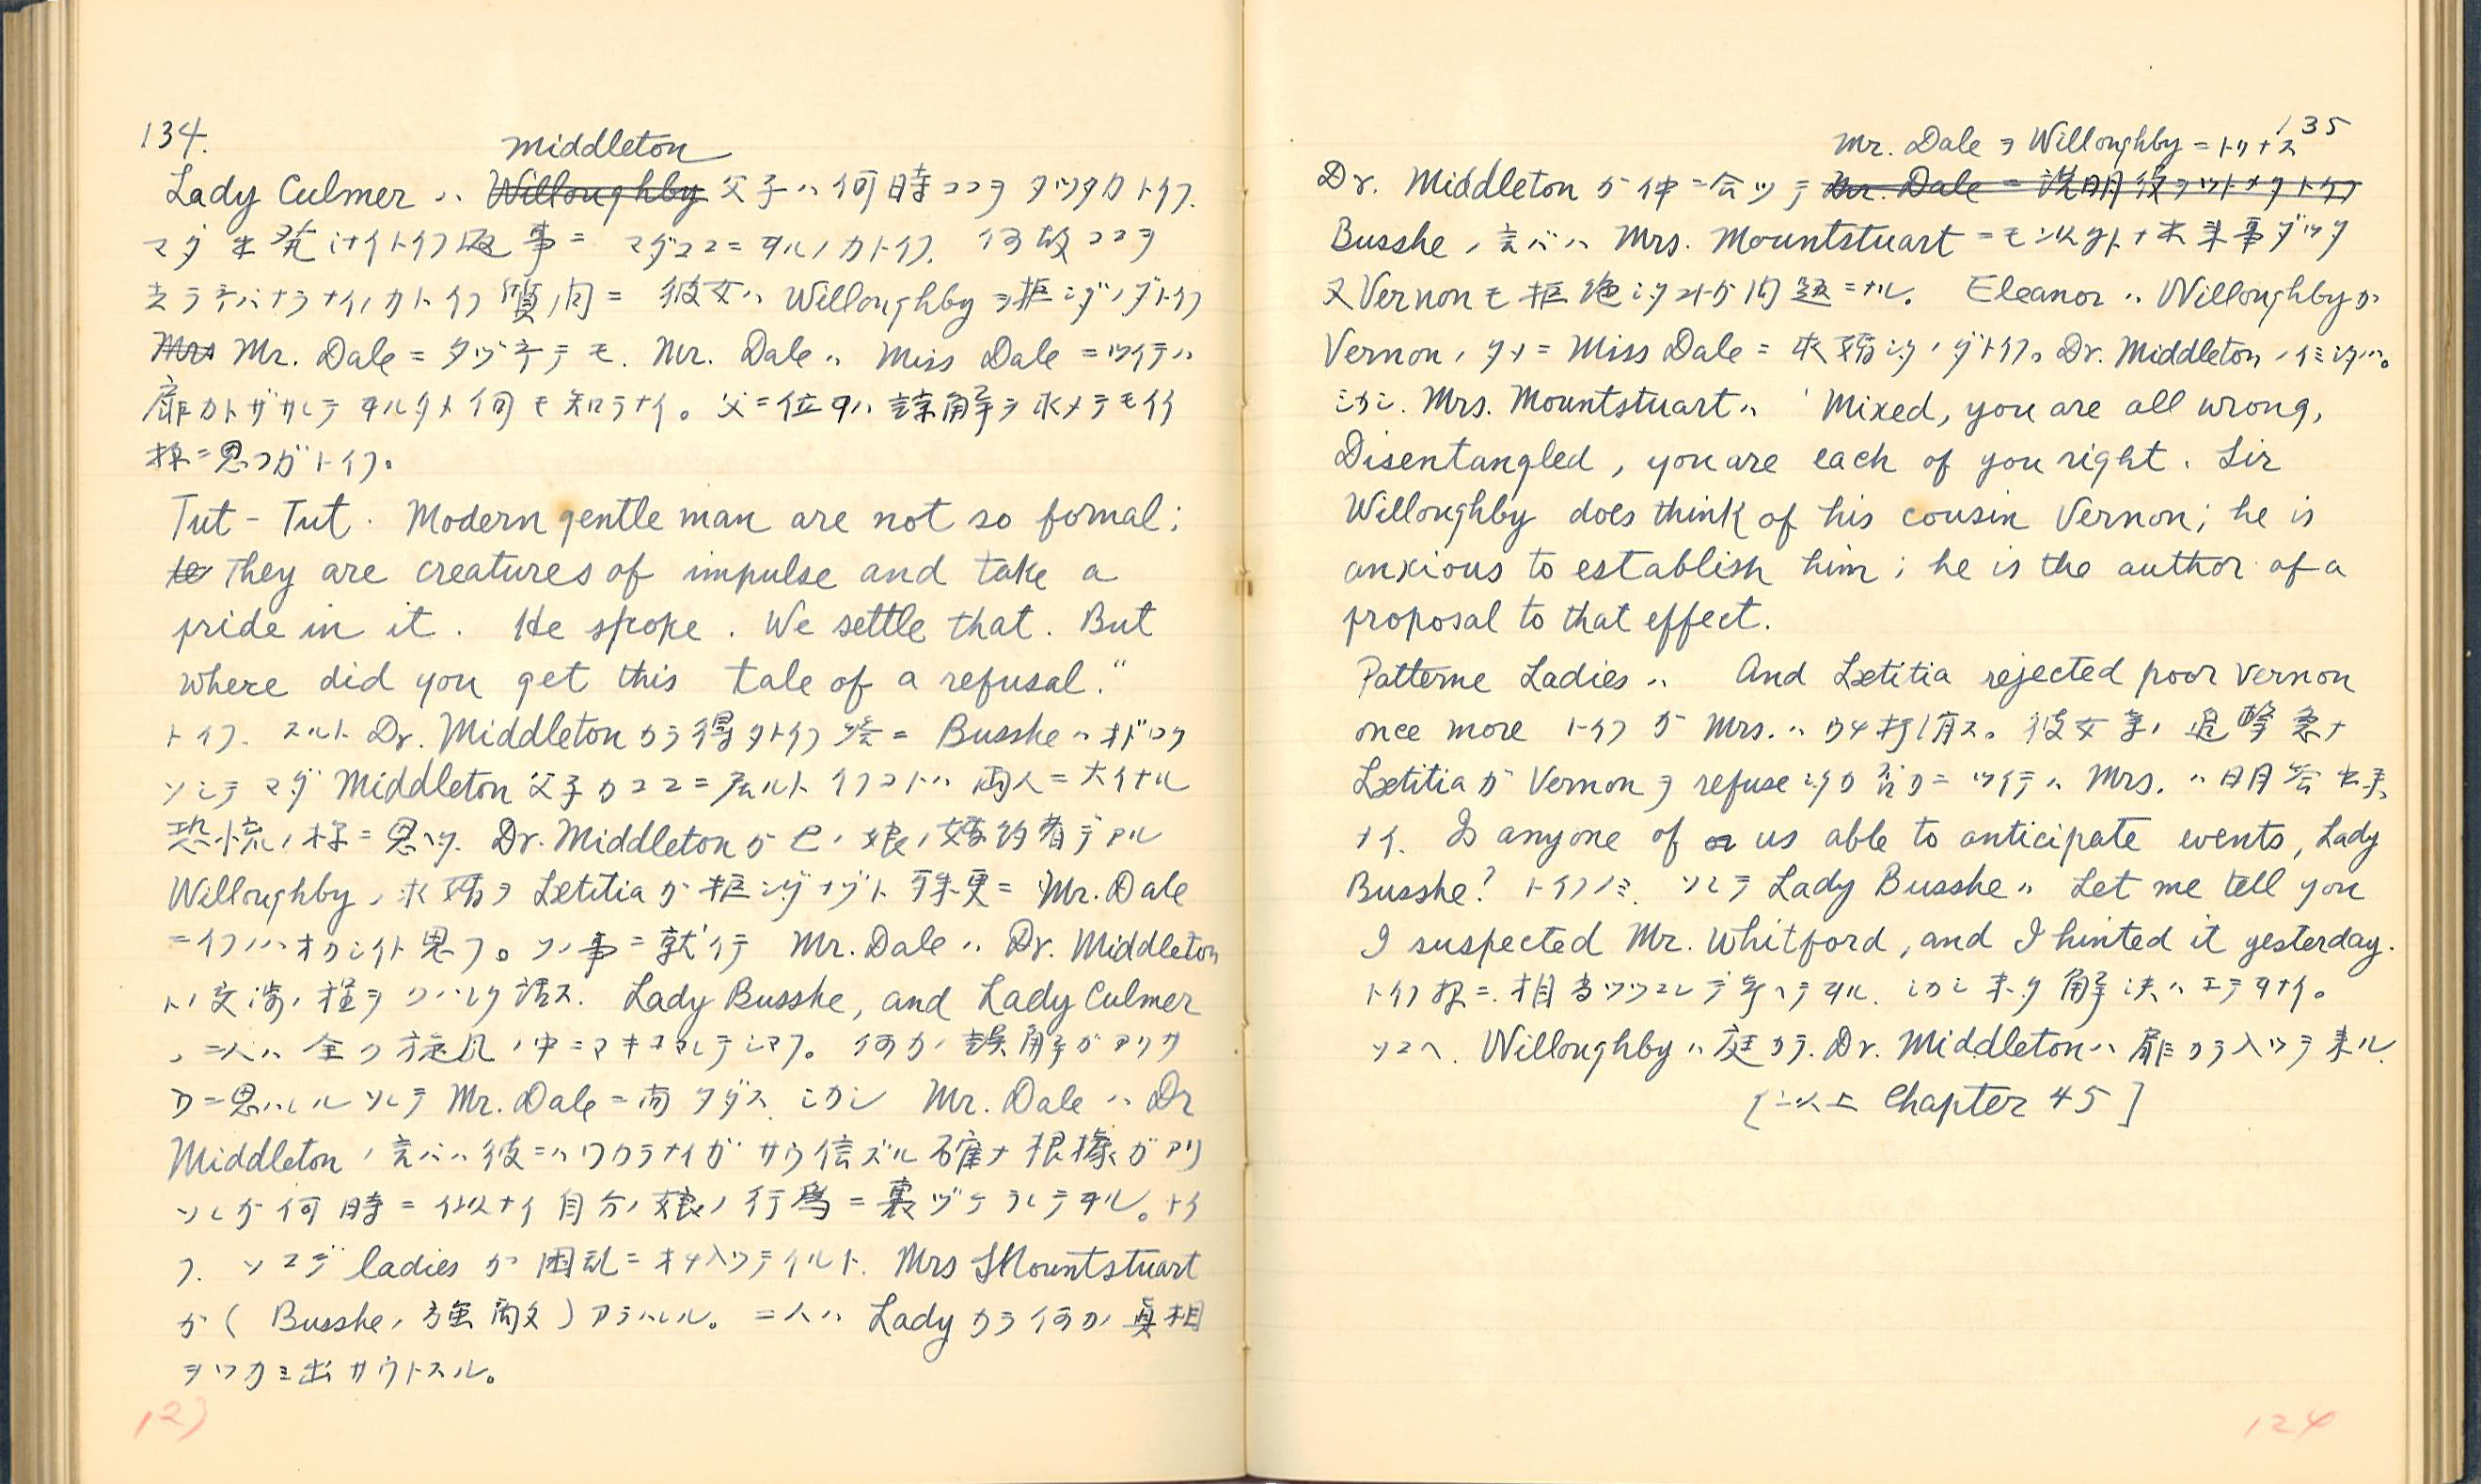 134.
Middleton
Lady Culmer ハ Willoughby 父子ハ何時ココヲタツタカトイフ.
マダ出発シナイトイフ返事ニ マダココニヲルノカトイフ. 何故ココヲ
去ラネバナラナイノカトイフ質問ニ 彼女ハ Willoughby ヲ拒ンダノダトイフ
Mrs Mr. Dale ニタヅネテモ. Mr. Dale ハ Miss Dale ニツイテハ
扉カトザサレテヲルタメ何モ知ラナイ。父ニ位ハ諒解ヲ求メテモイイ
様ニ思フガトイフ。
Tut - Tut. Modern gentle man are not so formal;
to They are creatures of impulse and take a
pride in it. He spoke. We settle that. But
where did you get this tale of a refusal."
トイフ. スルト Dr. Middleton カラ得タトイフ答ニ Busshe ハオドロク
ソシテマダ Middleton 父子カココニ居ルトイフコトハ 両人ニ大イナル
恐慌ノ様ニ思ヘタ. Dr. Middleton ガ己ノ娘ノ婚約者デアル
Willoughby ノ求婚ヲ Lætitia ガ拒ンダナゾト殊更ニ Mr. Dale
ニイフノハオカシイト思フ。ソノ事ニ就イテ Mr. Dale ハ Dr. Middleton
トノ交渉ノ程ヲクハシク話ス. Lady Busshe, and Lady Culmer
ノ二人ハ全ク旋風ノ中ニマキコマレテシマフ。何カノ誤解ガアリサ
ウニ思ハレル ソシテ Mr. Dale ニ向タダス. シカシ Mr. Dale ハ Dr
Middleton ノ言バハ彼ニハワカラナイガサウ信ズル確ナ根據ガアリ
ソレガ何時ニ似ナイ自分ノ娘ノ行爲ニ裏ヅケラレテヲル。トイ
フ. ソコデ ladies ガ困乱ニオチ入ツテイルト. Mrs Mountstuart
ガ( Busshe ノ強敵)アラハレル。二人ハ Lady カラ何カノ眞相
ヲツカミ出サウトスル。
123
135
Mr. Dale ヲ Willoughby ニトリナス
Dr. Middleton ガ仲ニ会ツテ Mr. Dale ニ説明役ヲツトメタトイフ
Busshe ノ言バハ Mrs. Mountstuart ニモ出来事ダツタ
又 Vernon モ拒絶シタコトガ問題ニナル。 Eleanor ハ Willoughby ガ
Vernon ノタメニ Miss Dale ニ求婚シタノダトイフ。Dr. Middleton ノイミシタハ。
シカシ. Mrs. Mountstuart ハ 'Mixed, you are all wrong,
Disentangled, you are each of you right. Sir
Willoughby does think of his cousin Vernon; he is
anxious to establish him; he is the author of a
proposal to that effect.
Patterne Ladies ハ And Lætitia rejected poor Vernon
once more トイフガ Mrs. ハウチ打消ス。彼女等ノ追撃急ナ
Lætitia ガ Vernon ヲ refuse シタカ否カニツイテハ Mrs. ハ明答出来
ナイ. Is anyone of a us able to anticipate events, Lady
Busshe? トイフノミ. ソシテ Lady Busshe ハ Let me tell you
I suspected Mr. Whitford, and I hinted it yesterday.
トイフ相当ツツコンデ考ヘテヲル. シカシ未ダ解決ハエテヲナイ。
ソコヘ. Willoughby ハ庭カラ. Dr. Middleton ハ扉カラ入ツテ来ル.
[以上 Chapter 45]
124